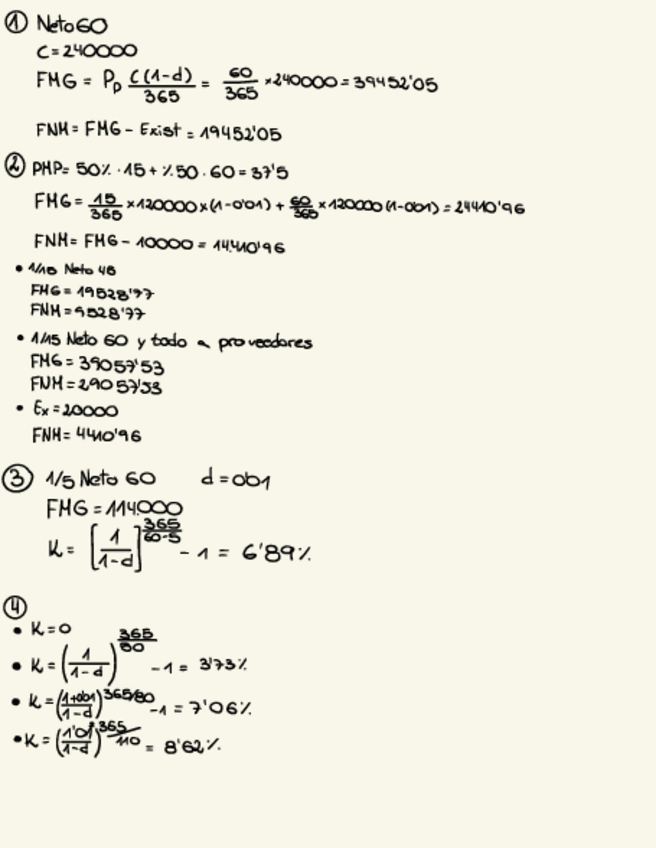 ① Neto 60
C = 240000
FMG = Pp C(1-d)/365 = 60/365 × 240000 = 39452'05
FNM = FMG - Exist = 19452'05
② PMP = 50% · 15 + %50 · 60 = 37'5
FMG = 15/365 × 120000 × (1-0'01) + 60/365 × 120000 (1-0'01) = 24410'96
FNM = FMG - 10000 = 14.410'96
• 1/15 Neto 45
FMG = 19528'77
FNM = 9528'77
• 1/15 Neto 60 y todo a proveedores
FMG = 39057'53
FNM = 29057'53
• Ex = 20000
FNM = 4410'96
③ 1/5 Neto 60 d = 0'01
FMG = 114.000
K = [1/(1-d)]^(365/(60-5)) - 1 = 6'89%
④
• K = 0
• K = (1/(1-d))^(365/) - 1 = 3'73%
• K = ((1+0'01)/(1-d))^(365/) - 1 = 7'06%
• K = (1'0/(1-d))^(365/110) = 8'62%